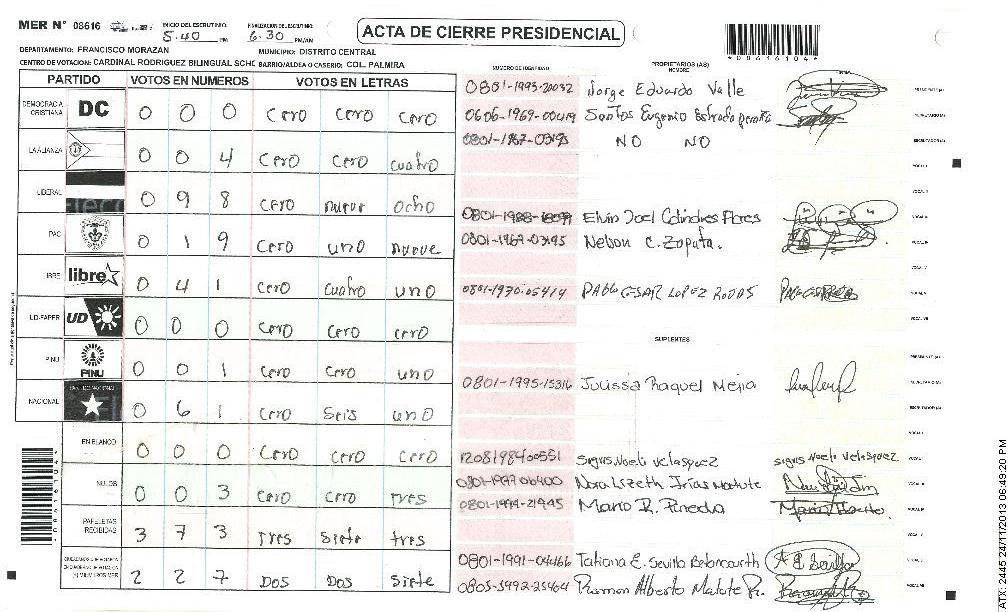 MER N° 08616 INICIO DEL ESCRUTINIO: 5.40 PM FINALIZACION DEL ESCRUTINIO: 6.30 PM/AM
ACTA DE CIERRE PRESIDENCIAL
*08616104*
DEPARTAMENTO: FRANCISCO MORAZAN MUNICIPIO: DISTRITO CENTRAL
CENTRO DE VOTACION: CARDINAL RODRIGUEZ BILINGUAL SCHO BARRIO/ALDEA O CASERIO: COL. PALMIRA
PARTIDO VOTOS EN NUMEROS VOTOS EN LETRAS
DEMOCRACIA CRISTIANA DC 0 0 0 Cero Cero Cero
LA ALIANZA 0 0 4 Cero Cero Cuatro
LIBERAL 0 9 8 Cero nueve Ocho
PAC 0 1 9 Cero uno nueve
LIBRE libre 0 4 1 Cero Cuatro uno
UD-FAPER UD 0 0 0 Cero Cero Cero
PINU PINU 0 0 1 Cero Cero uno
NACIONAL 0 6 1 Cero Seis uno
EN BLANCO 0 0 0 Cero Cero Cero
NULOS 0 0 3 Cero Cero tres
PAPELETAS RECIBIDAS 3 7 3 Tres Siete tres
2 2 7 Dos Dos Siete
NUMERO DE IDENTIDAD PROPIETARIOS (AS) NOMBRE FIRMA
0801-1993-20032 Jorge Eduardo Valle PRESIDENTE (A)
0606-1969-00419 Santos Eugenio Estrada SECRETARIO (A)
0801-1967-03195 NO NO ESCRUTADOR (A)
VOCAL I
VOCAL II
Elvin Joel Colindres Flores VOCAL III
0801-1967-03195 Nelson C. Zapata. VOCAL IV
VOCAL V
0801-1970-05414 PABLO CESAR LOPEZ RODAS VOCAL VI
VOCAL VII
SUPLENTES
PRESIDENTE (A)
0801-1995-15316 Julissa Raquel Mejia SECRETARIO (A)
ESCRUTADOR (A)
VOCAL I
1208198400551 Sigris Noeli Velasquez Sigris Noeli Velasquez
0801-1997-06400 Nora Lizeth Irías Matute
0801-1994-21945 Mario R. Pineda
0801-1991-04466 Tatiana E. Sevilla
Ramon Alberto Matute
ATX 2445 24/11/2013 06:49:20 PM